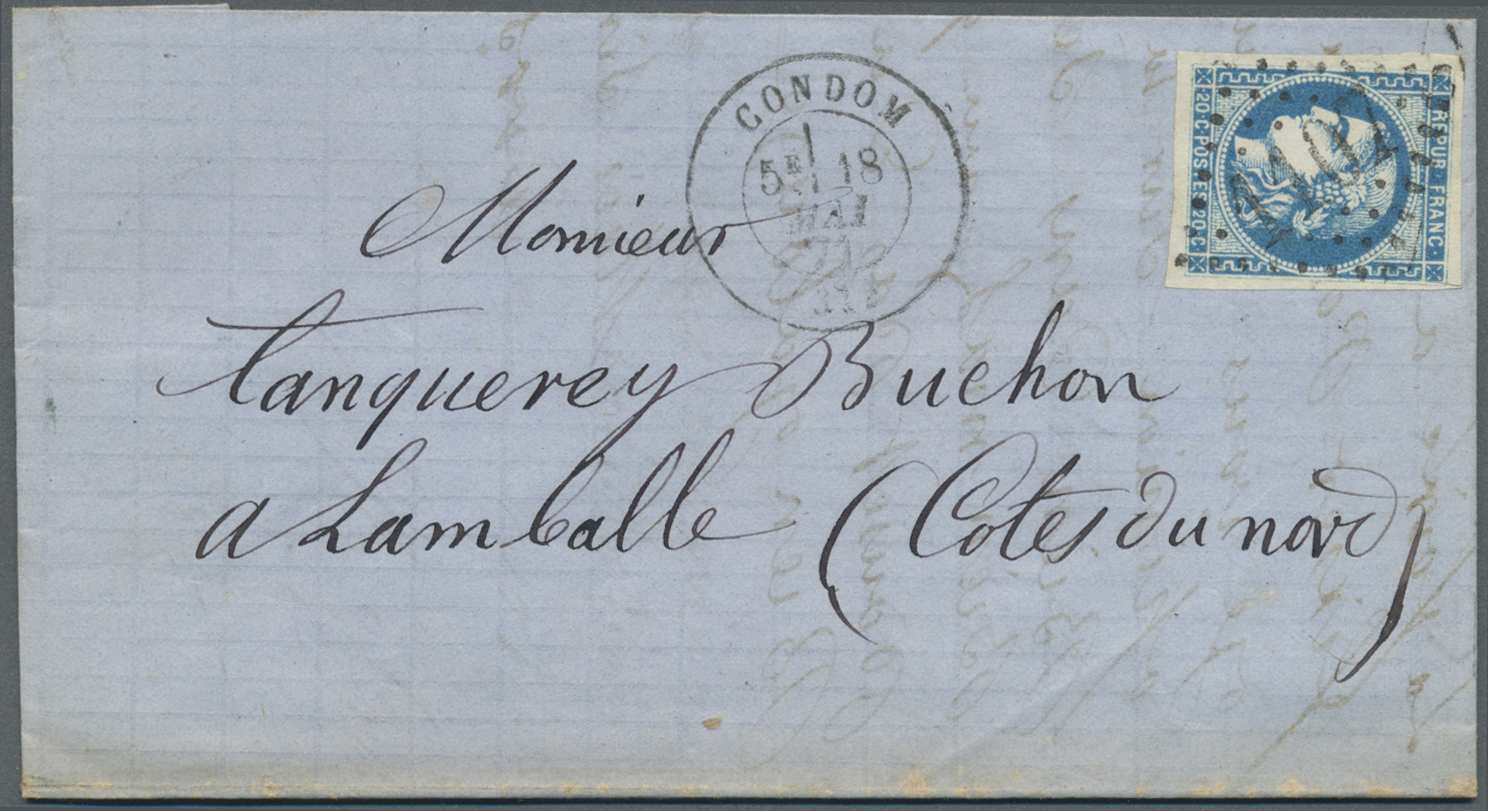 CONDOM
5E 18
MAI
71
REPUB. FRANC.
20.C.POSTES.20.C
Monsieur
Tanquerey Buchon
a Lamballe (Cotes du nord)